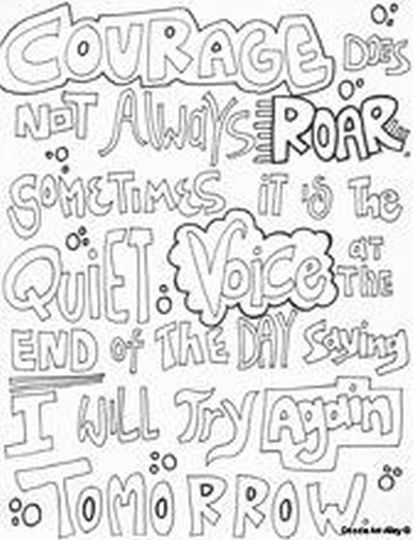 COURAGE DOES
NOT Always ROAR.
SOMETIMES iT is The
QUiET Voice aT The
END of The DAY Saying
I WiLL Try Again
TOMORROW.
Doodle Art Alley ©